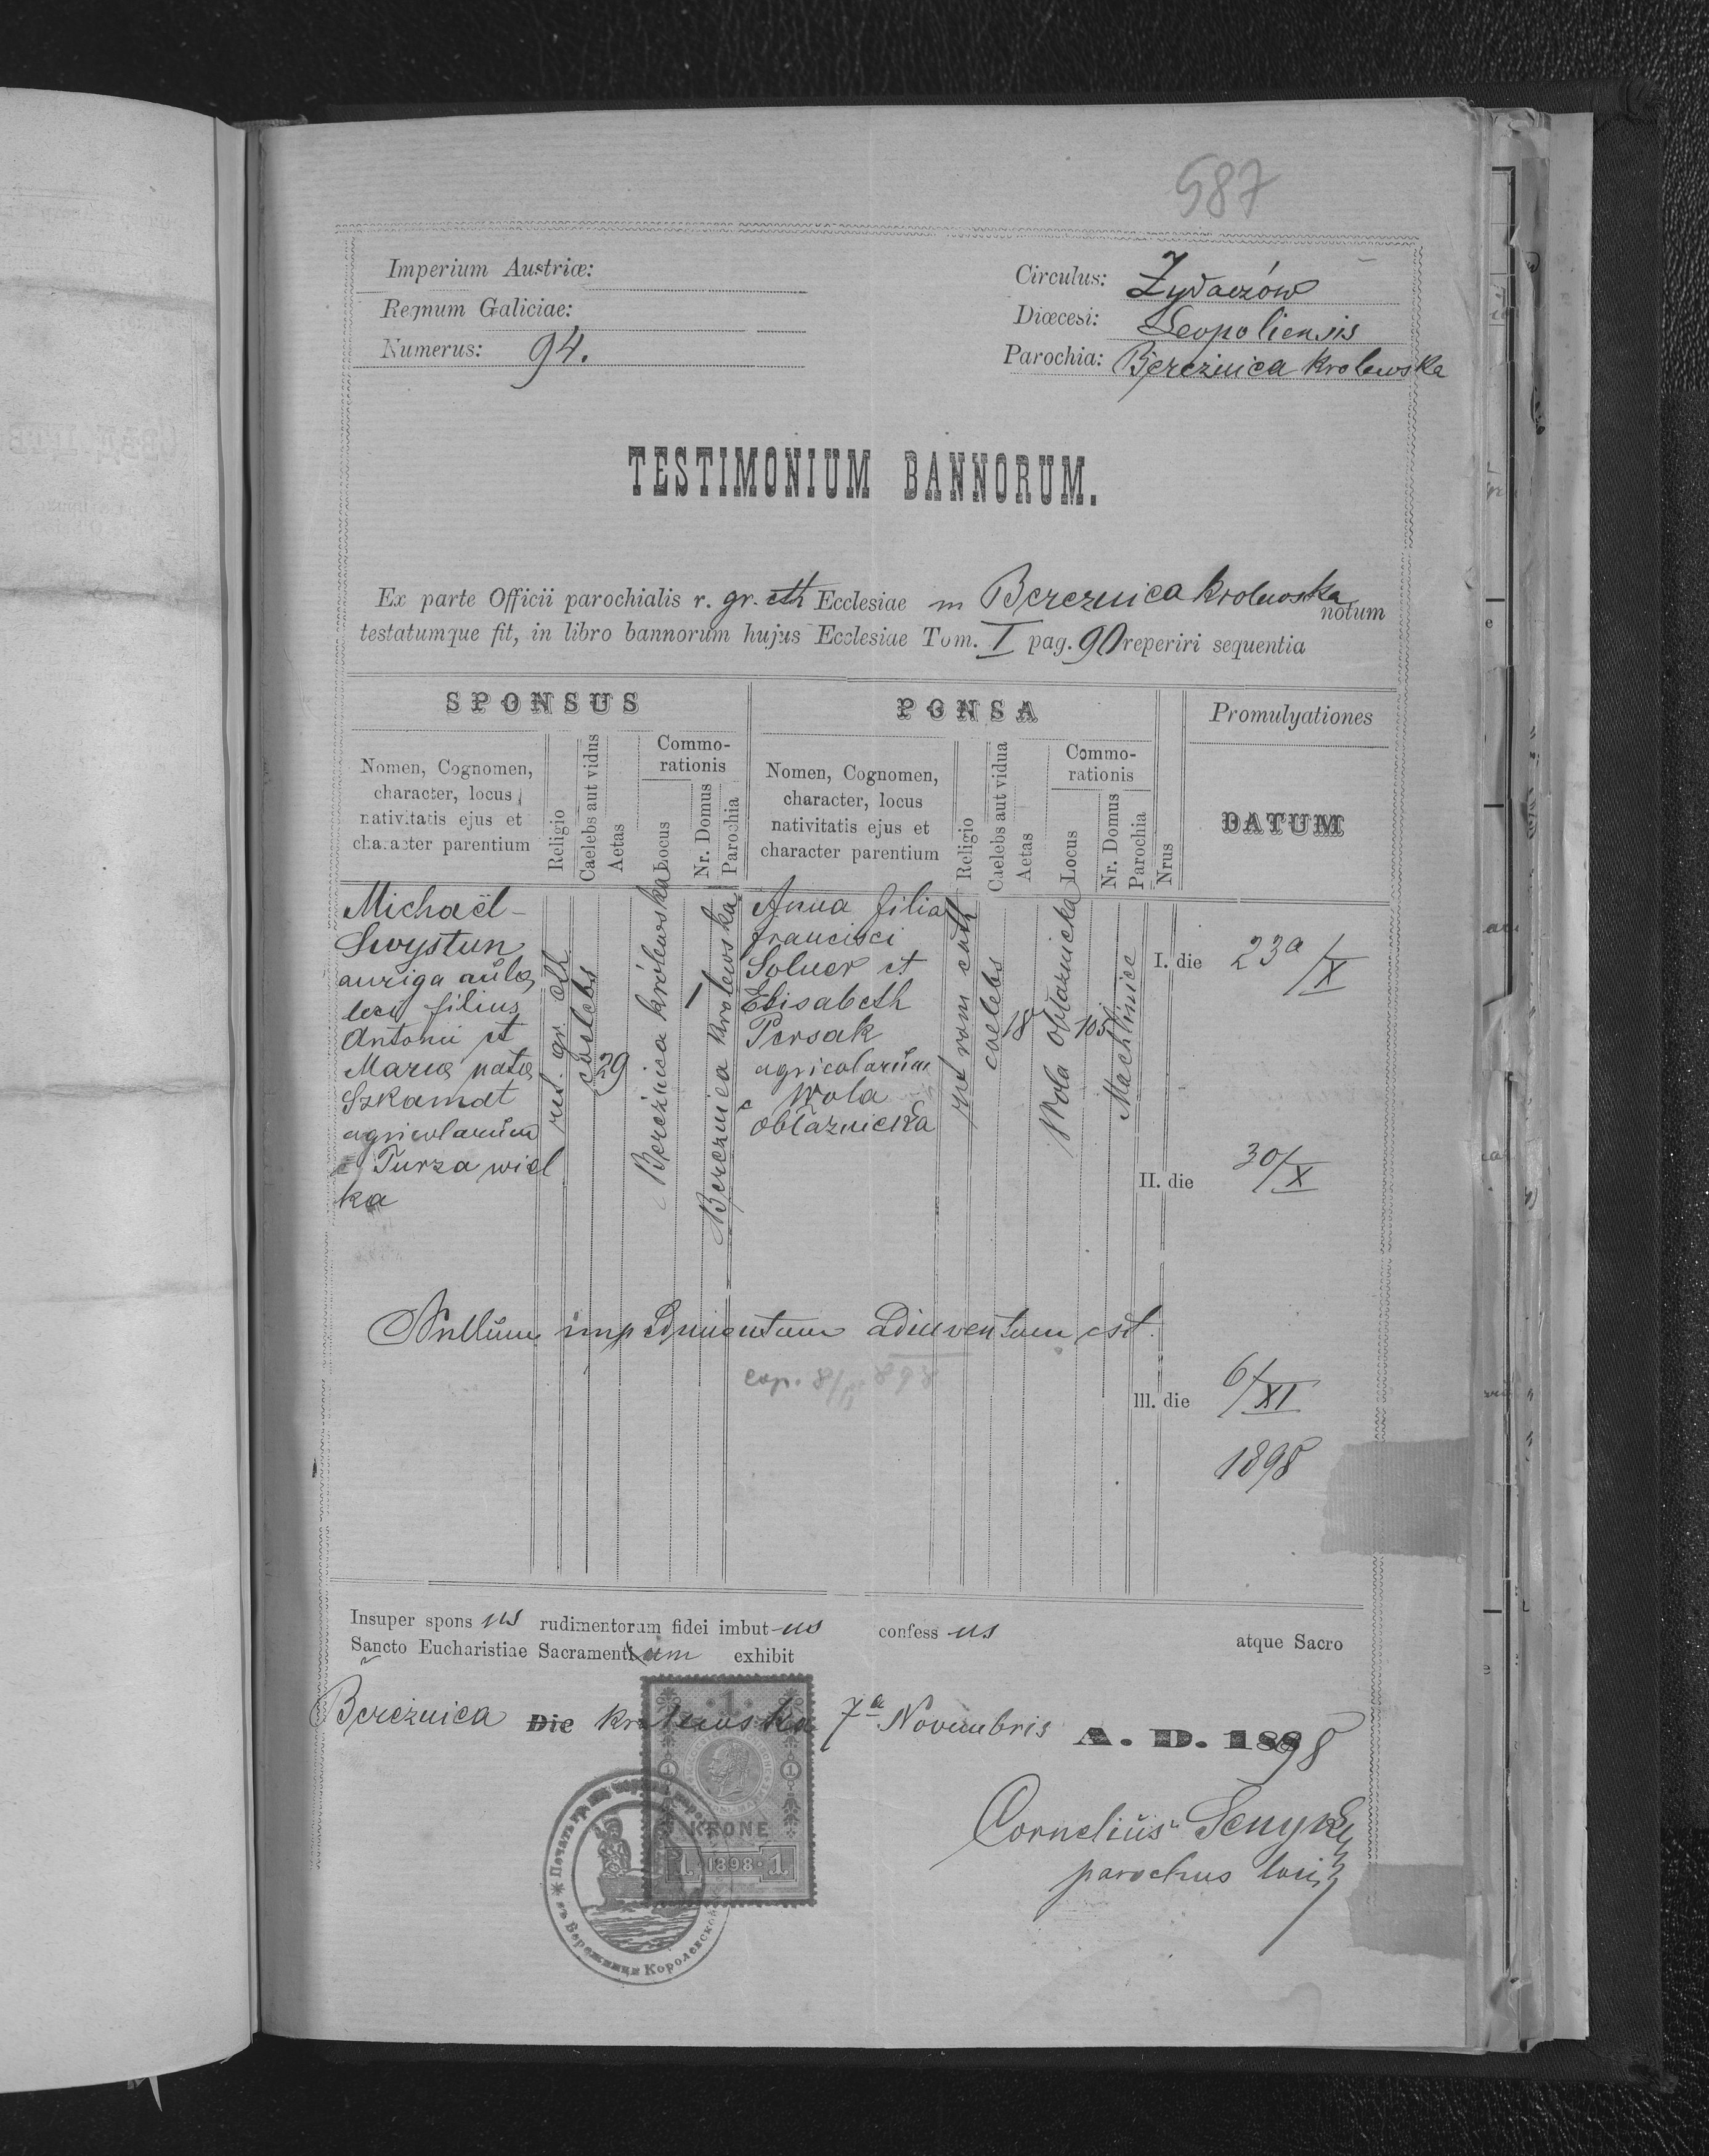 587
Imperium Austriæ:
Regnum Galiciae:
Numerus: 94.
Circulus: Żydaczów
Diœcesi: Leopoliensis
Parochia: Bereżnica krolewska
TESTIMONIUM BANNORUM.
Ex parte Officii parochialis r. gr. cth Ecclesiae in Bereznica krolewska notum
testatumque fit, in libro bannorum hujus Ecclesiae Tom. I pag. 90 reperiri sequentia
SPONSUS
PONSA
Promulgationes
Nomen, Cognomen,
character, locus
nativitatis ejus et
character parentium
Religio
Caelebs aut vidus
Aetas
Commo-
rationis
Locus
Nr. Domus
Parochia
Nomen, Cognomen,
character, locus
nativitatis ejus et
character parentium
Religio
Caelebs aut vidua
Aetas
Commo-
rationis
Locus
Nr. Domus
Parochia
Nrus
DATUM
Michaël
Swystun
auriga aulae
filius
Antonii et
Maria nata
Szkamat
agricolarum
Turza wiel
ka
rit. gr. cth
caelebs
29
Bereznica królewska
1
Bereznica krolewska
Anna filia
francisci
Soluer et
Elisabeth
Persak
agricolarum
Wola
obłaznicka
rit rom cath
caelebs
18
Wola obłaznicka
105
Machlinice
I. die 23a/X
II. die 30/X
III. die 6/XI
1898
Nullum impedimentum adinventum est.
cop. 8/XI 898
Insuper spons us rudimentorum fidei imbut us confess us atque Sacro
Sancto Eucharistiae Sacrament um exhibit
Bereżnica Die krolewska 7a Novembris A. D. 1898
1
KRONE
1. 1898 1.
Печать гр.
въ Бережници Королевской
Cornelius Senyk
parochus loci